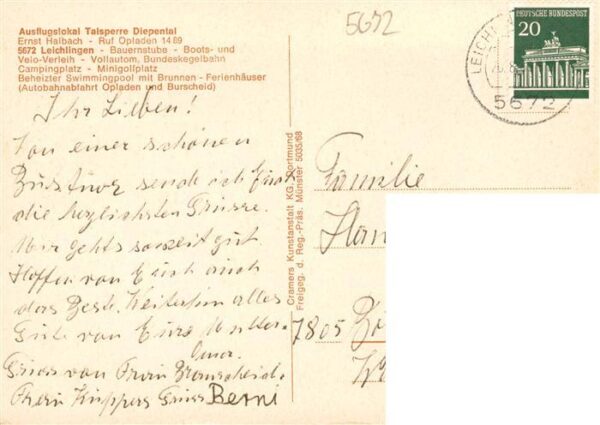 5672
Ausflugslokal Talsperre Diepental
Ernst Halbach - Ruf Opladen 14 69
5672 Leichlingen - Bauernstube - Boots- und
Velo-Verleih - Vollautom. Bundeskegelbahn
Campingplatz - Minigolfplatz
Beheizter Swimmingpool mit Brunnen - Ferienhäuser
(Autobahnabfahrt Opladen und Burscheid)
DEUTSCHE BUNDESPOST
20
LEICHL
5672
Ihr Lieben!
Von einer schönen
send ich Euch
die herzlichsten Grüsse.
Mir gehts soweit gut
Hoffen von Euch auch
das Beste. Weiterhin alles
Gute von Eure Mutter.
Oma.
Gruss von Frau
Frau Küppers Gruss Berni
Cramers Kunstanstalt KG. Dortmund
Freigeg. d. Reg.-Präs. Münster 5035/68
Familie
7805